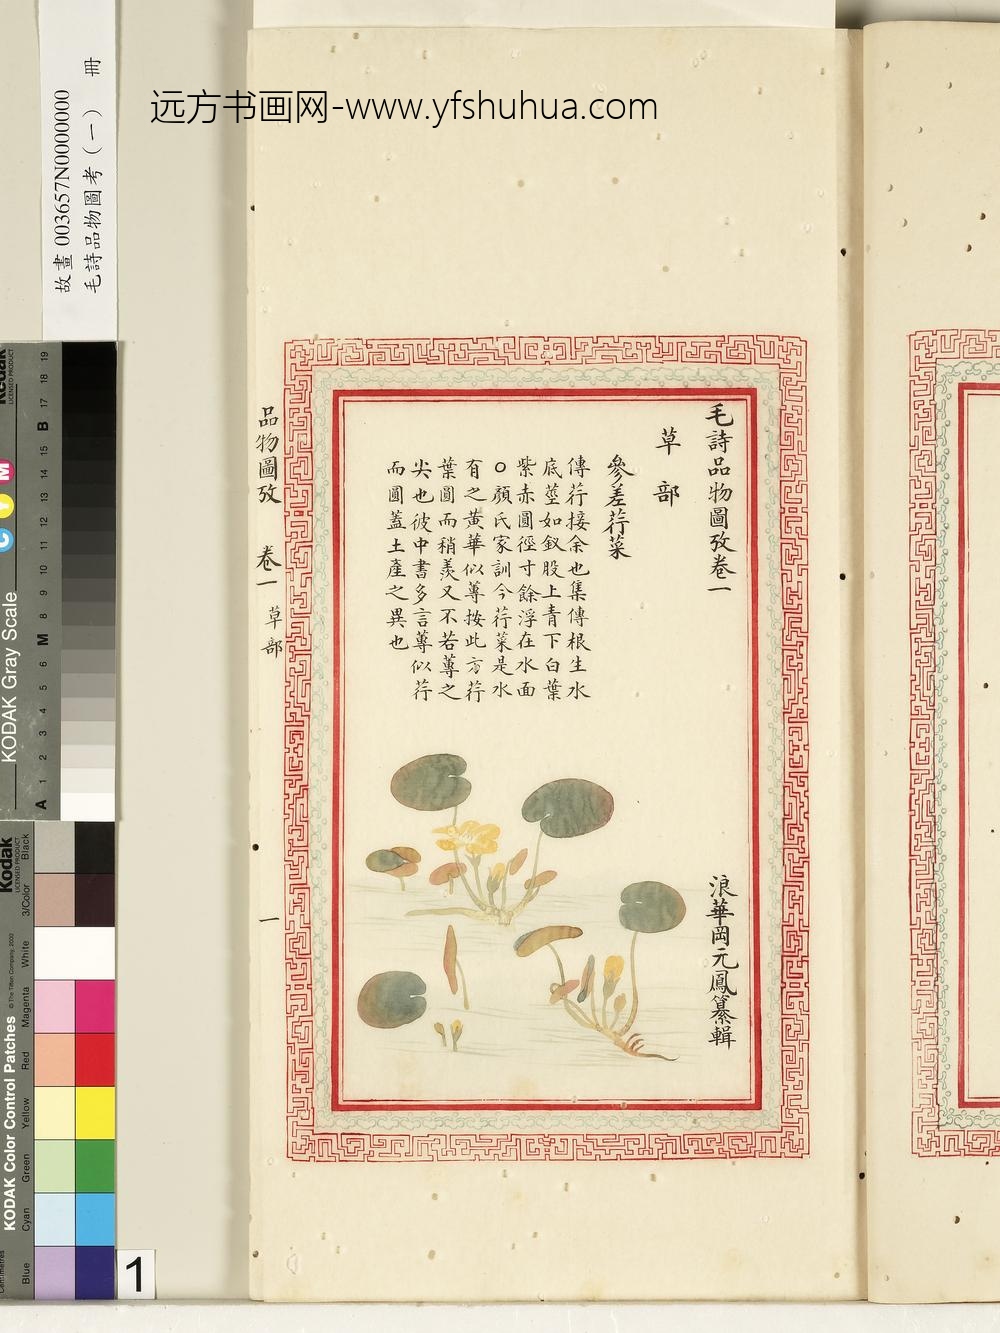 远方书画网-www.yfshuhua.com
故畫 003657N0000000
毛詩品物圖考（一） 冊
毛詩品物圖攷卷一
浪華岡元鳳纂輯
草部
參差荇菜
傳荇接余也集傳根生水
底莖如釵股上青下白葉
紫赤圓徑寸餘浮在水面
○顏氏家訓今荇菜是水
有之黃華似蓴按此方荇
葉圓而稍羨又不若蓴之
尖也彼中書多言蓴似荇
而圓蓋土產之異也
品物圖攷 卷一 草部 一
Kodak
LICENSED PRODUCT
KODAK Gray Scale
C Y M
A 1 2 3 4 5 6 M 8 9 10 11 12 13 14 15 B 17 18 19
Kodak
LICENSED PRODUCT
KODAK Color Control Patches
© The Tiffen Company, 2000
Blue Cyan Green Yellow Red Magenta White 3/Color Black
Centimetres
1